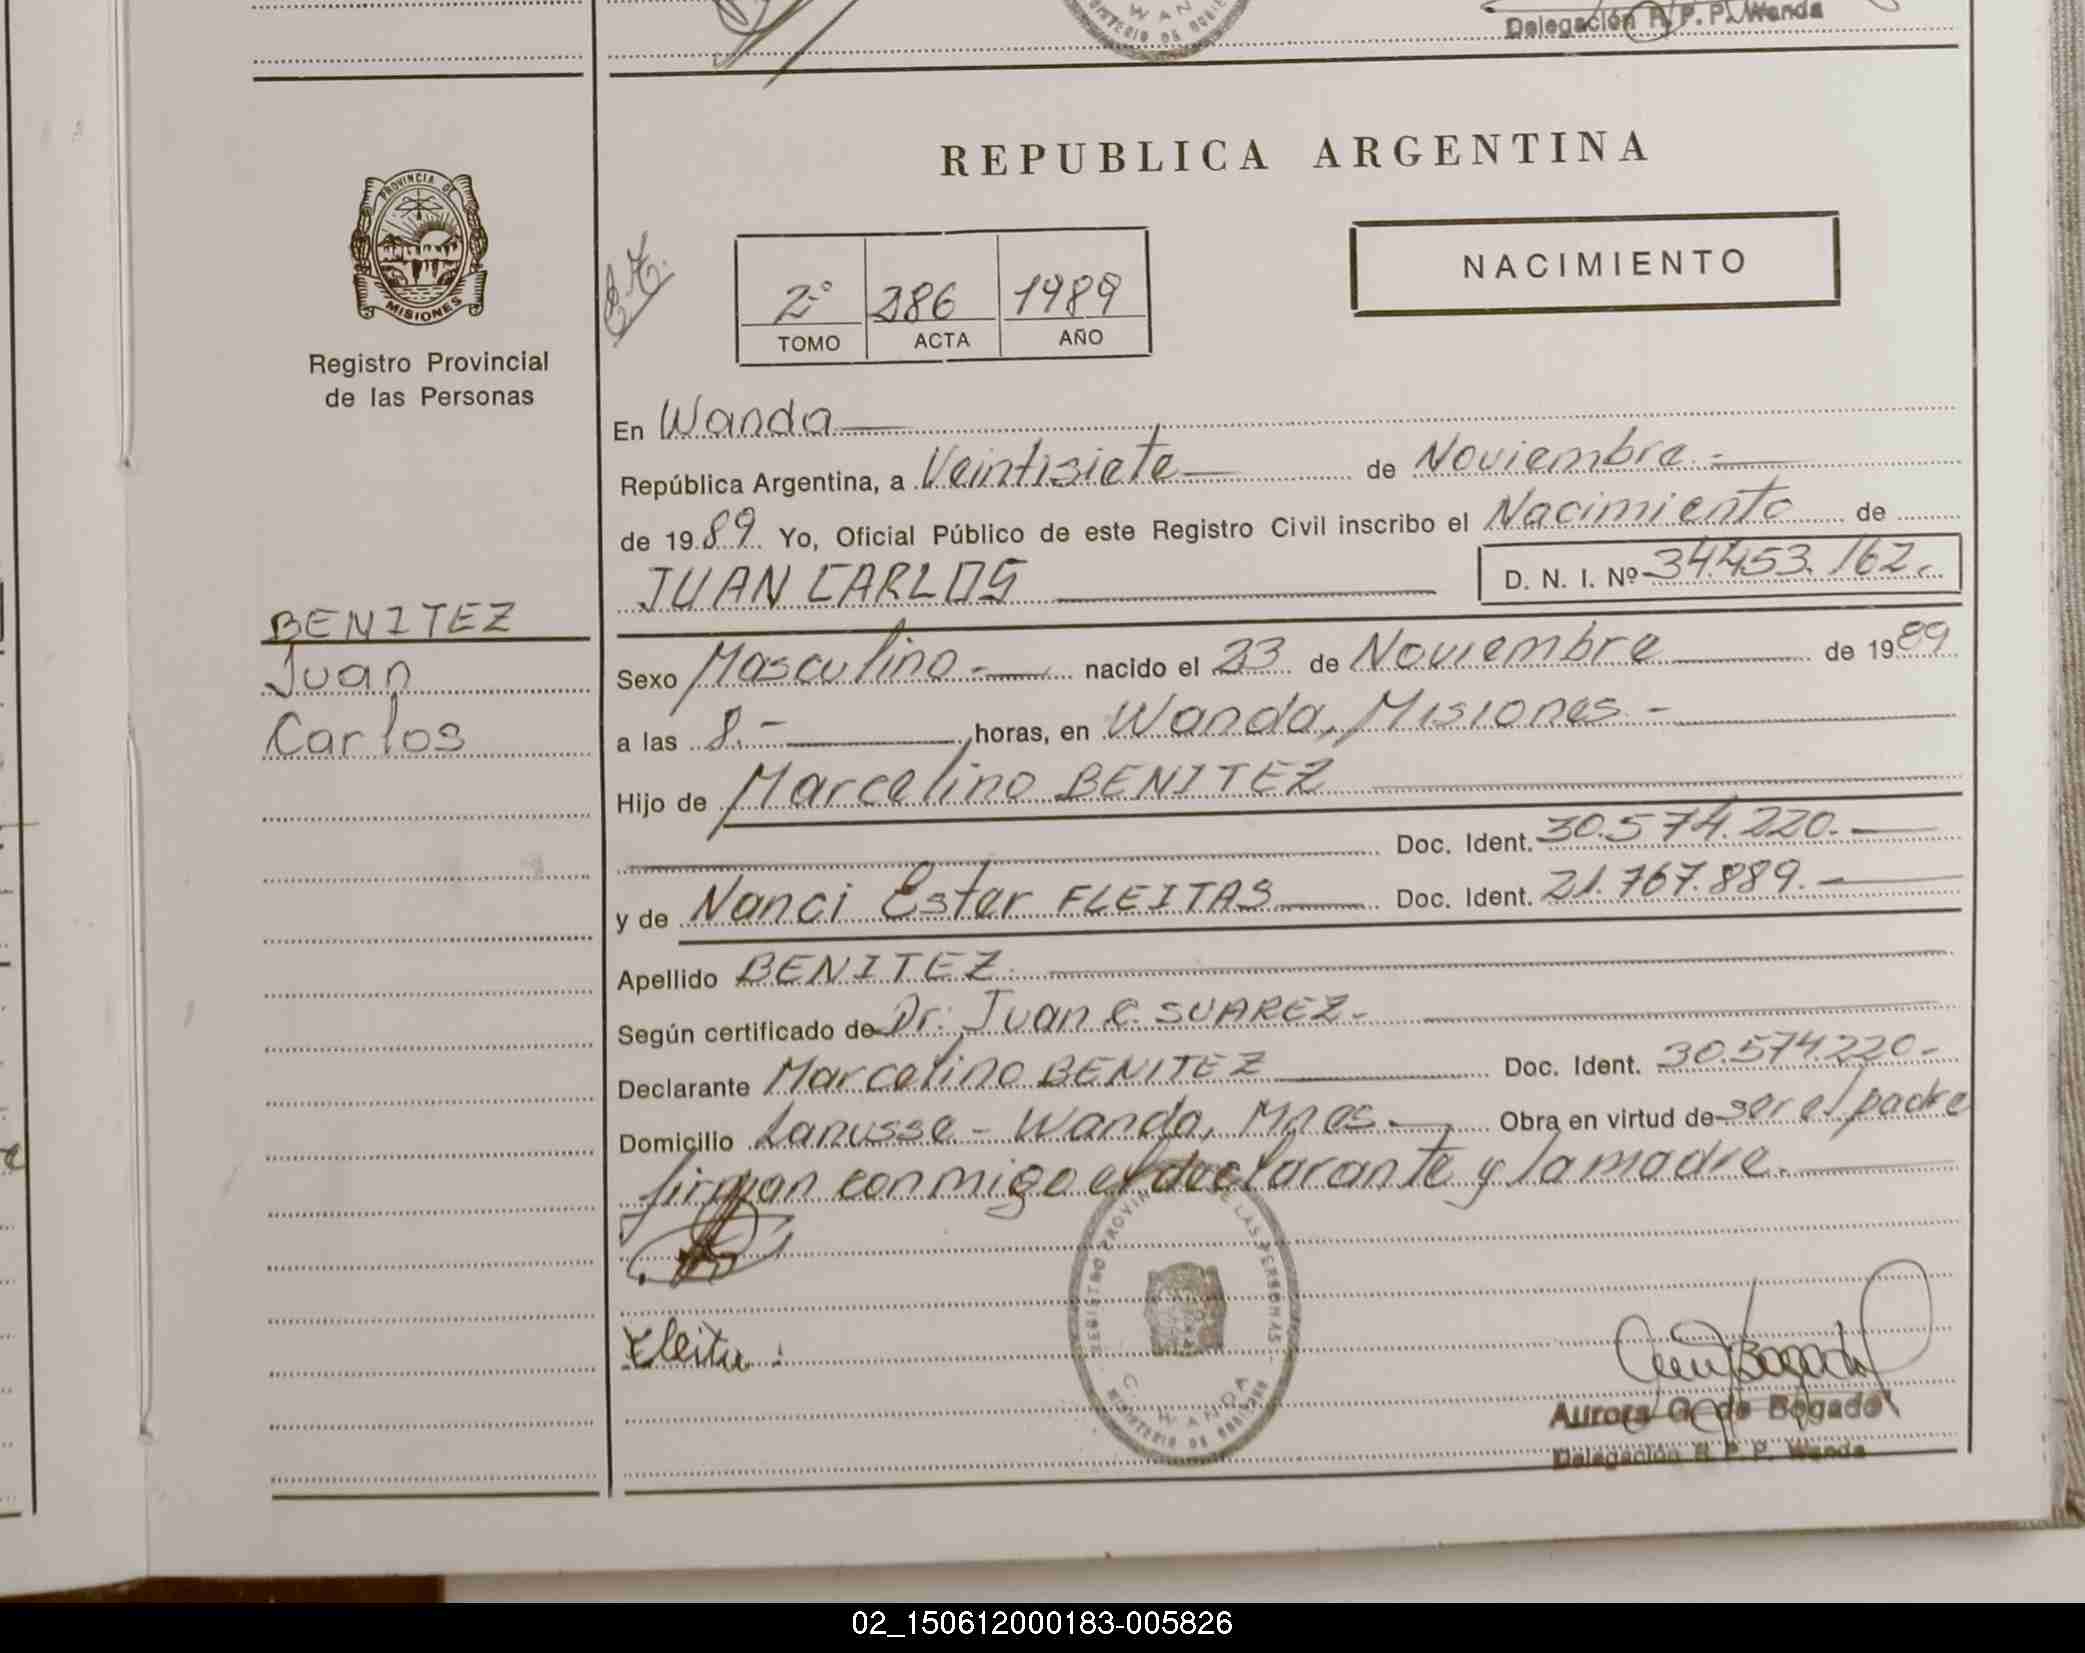 WANDA
MINISTERIO DE GOBIERNO
Delegación R. P. P. Wanda
PROVINCIA DE
MISIONES
Registro Provincial
de las Personas
BENITEZ
Juan
Carlos
REPUBLICA ARGENTINA
2º 286 1989
TOMO ACTA AÑO
NACIMIENTO
En Wanda
República Argentina, a Veintisiete de Noviembre.-
de 1989. Yo, Oficial Público de este Registro Civil inscribo el Nacimiento de
JUAN CARLOS D. N. I. Nº 34.453.162.
Sexo Masculino.- nacido el 23 de Noviembre de 1989
a las 8.- horas, en Wanda, Misiones.-
Hijo de Marcelino BENITEZ
Doc. Ident. 30.574.220.-
y de Nanci Ester FLEITAS Doc. Ident. 21.767.889.-
Apellido BENITEZ.
Según certificado de Dr. Juan C. SUAREZ.-
Declarante Marcelino BENITEZ Doc. Ident. 30.574.220-
Domicilio Lanusse - Wanda, Mnes.- Obra en virtud de ser el padre
firman conmigo el declarante y la madre.
REGISTRO PROVINCIAL DE LAS PERSONAS
WANDA
MINISTERIO DE GOBIERNO
Aurora G. de Bogado
Delegación R. P. P. Wanda
02_150612000183-005826